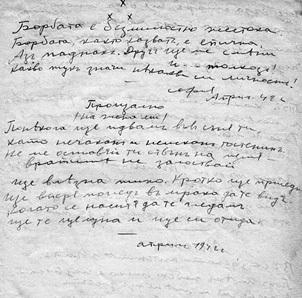 Борбата е безмилостно жестока
Борбата, както казват, е епична.
Аз паднах. Друг ще ме смени
и... толкоз!
какво тук значи някаква си личност!
Април 42 г.
Прощално
На жена ми
Понякога ще идвам във съня ти,
като нечакан и неискан гостенин.
Не ме оставяй ти отвън на пътя
вратите не залоствай
ще вляза тихо. Кротко ще приседна
ще вперя поглед в мрака да те видя
Когато се наситя да те гледам
ще те целуна и ще си отида.
април 1942 г.